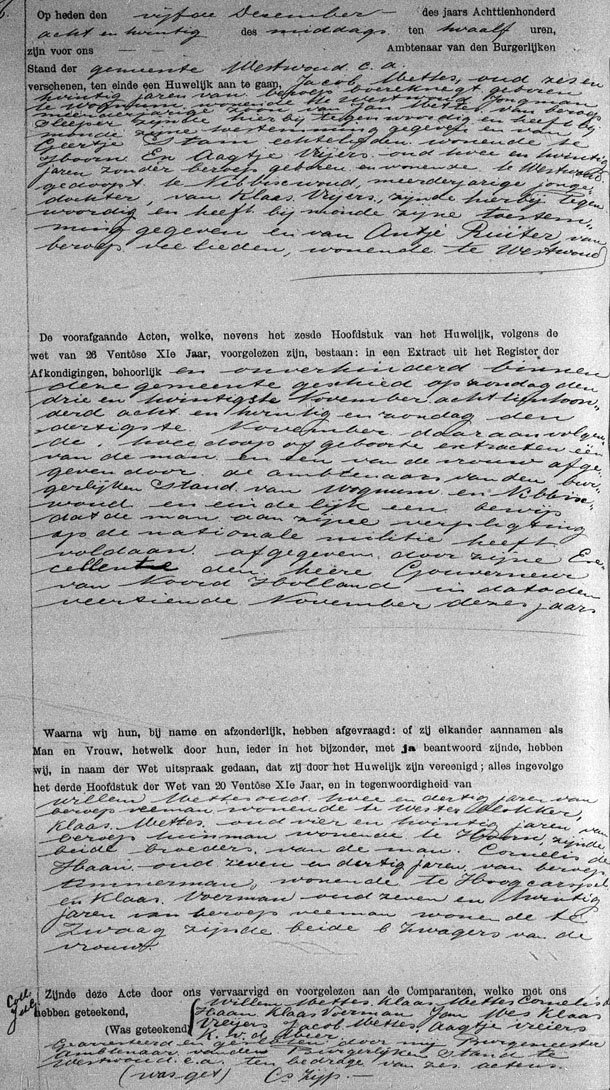 Op heden den vijfde December des jaars Achttienhonderd
acht en twintig des middags ten twaalf uren,
zijn voor ons — — Ambtenaar van den Burgerlijken
Stand der gemeente Westwoud c.a.
verschenen, ten einde een Huwelijk aan te gaan, Jacob Mettes, oud zes en
twintig jaren van beroep boereknegt geboren
te Wognum, wonende te Westwoud Jongman
meerderjarige zoon van Jan Metses van beroep
sleeper zijnde hierbij tegenwoordig en heeft bij
monde zijne toestemming gegeven en van
Geertje Stam echtelieden wonende te
Hoorn En Aagtje Vrijers oud twee en twintig
jaren zonder beroep geboren en wonende te Westwoud
gedoopt te Nibbixwoud, meerderjarige jonge-
dochter, van Klaas Vrijers, zijnde hierbij tegen
woordig en heeft bij monde zijne toestem-
ming gegeven en van Antje Ruiter van
beroep veelieden, wonende te Westwoud
De voorafgaande Acten, welke, nevens het zesde Hoofdstuk van het Huwelijk, volgens de
wet van 26 Ventôse XIe Jaar, voorgelezen zijn, bestaan: in een Extract uit het Register der
Afkondigingen, behoorlijk en onverhinderd binnen
deze gemeente geschied op zondag den
drie en twintigste November achttienhon-
derd acht en twintig en zondag den
dertigste November daaraanvolgen-
de, twee doop of geboorte extracten een
van de man en een van de vrouw afge-
geven door de ambtenaars van den bur-
gerlijken Stand van Wognum en Nibbix-
woud en eindelijk een bewijs
dat de man aan zijne verpligting
op de nationale militie heeft
voldaan afgegeven door zijne Ex-
cellentie den heere Gouverneur
van Noord Holland in dato den
veertiende November dezes jaars
Waarna wij hun, bij name en afzonderlijk, hebben afgevraagd: of zij elkander aannamen als
Man en Vrouw, hetwelk door hun, ieder in het bijzonder, met ja beantwoord zijnde, hebben
wij, in naam der Wet uitspraak gedaan, dat zij door het Huwelijk zijn vereenigd; alles ingevolge
het derde Hoofdstuk der Wet van 20 Ventôse XIe Jaar, en in tegenwoordigheid van
Willem Mettes oud twee en dertig jaren van
beroep veeman wonende te Wester Blokker,
Klaas Mettes oud vier en twintig jaren van
beroep huisman wonende te Hoorn, zijnde
beide broeders van de man. Cornelis de
Haan oud zeven en dertig jaren van beroep
timmerman, wonende te Hoogcarspel
en Klaas Voerman oud zeven en twintig
jaren van beroep veeman wonende te
Zwaag zijnde beide zwagers van de
vrouw
Zijnde deze Acte door ons vervaarvigd en voorgelezen aan de Comparanten, welke met ons
hebben geteekend, Willem Mettes Klaas Mettes Cornelis de
Haan Klaas Voerman Jan Mes Klaas
(Was geteekend) Vreijers Jacob Mettes Aagtje vreiers
K. v. d.
Burgemeester
Ambtenaar van den Burgerlijken Stand te
Westwoud c.a. ten bedrage van zes actens
(was get) Cs Zijp.—